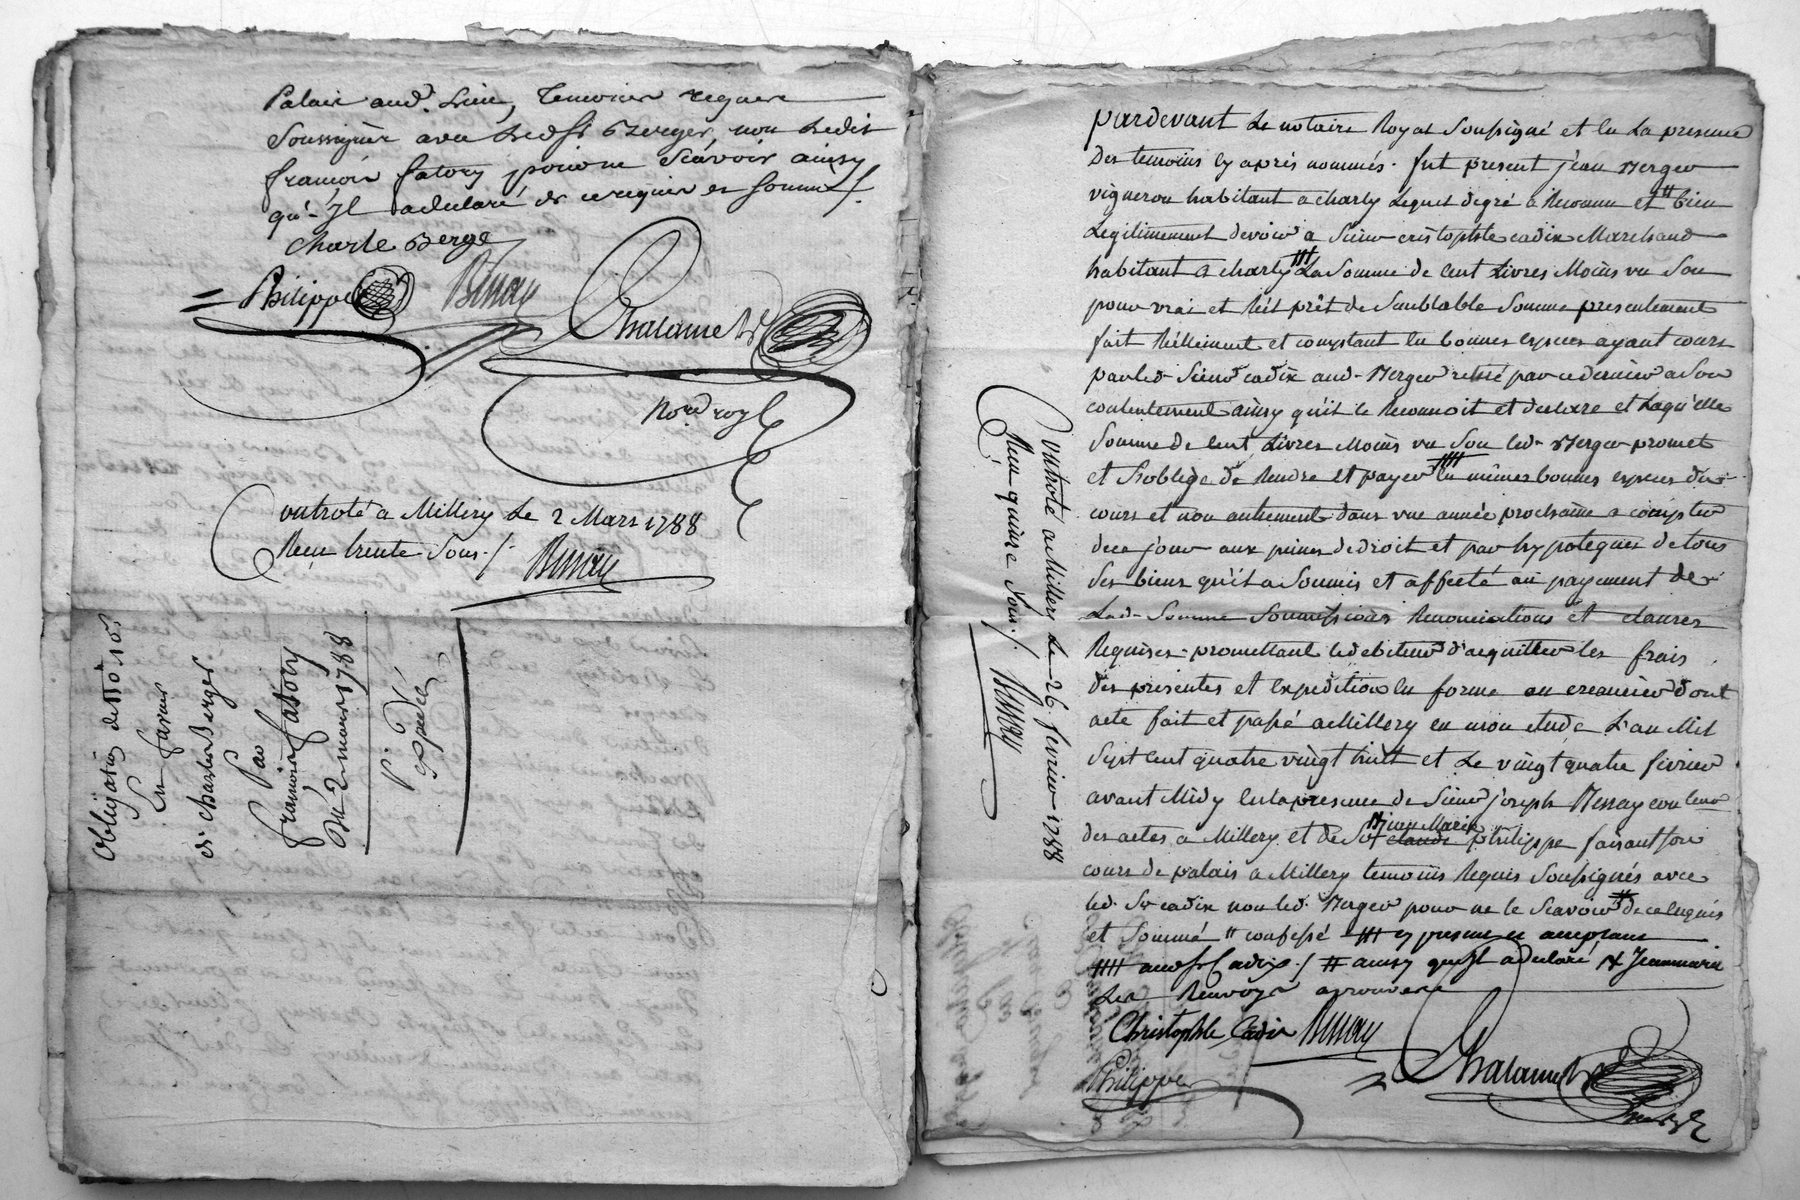 Palais aud. Lieu, temoins requis
Soussignés avec Led. Sr Berger, non Ledit
françois fatory pour ne Scavoir ainsy
qu'Il a declaré de ce requis et sommé /.
Charle Berge
Philippe Bessay Chalamel
No.re roy.l
Controlé a Millery Le 2 Mars 1788
Reçu trente Sous ./. Bessay
Obligation de
En faveur
de Charles Berger
Par
françois fatory
Du 2 mars 1788
Expedié
Controlé a Millery Le 26 fevrier 1788
Reçu quinze Sous ./. Bessay
pardevant Le notaire Royal Soussigné et en La presence
Des temoins cy après nommés. fut present jean Berger
vigneron habitant a charly Lequel de gré a Reconnu et # bien
Legitimement devoir a Sieur cristophle cadix Marchand
habitant a charly ### La Somme de Cent Livres Moins un Sou
pour vrai et Réel prêt de Semblable Somme presentement
fait Réellement et comptant en bonnes especes ayant cours
par led. Sieur cadix aud. Berger retiré par ce dernier a Son
contentement ainsy qu'il le Reconnoit et declare et Laquelle
Somme de Cent Livres Moins un Sou led. Berger promet
et s'oblige de Rendre et payer #### en mêmes bonnes especes du
cours et non autrement dans une année prochaine a compter
de ce jour aux peines de droit et par hypoteques de tous
Ses biens qu'il a Soumis et affecté au payement de
Lad. Somme Soumissions Renonciations et clauses
Requises. promettant le debiteur d'acquitter les frais
des presentes et Expedition en forme au creancier dont
acte fait et passé a Millery en mon etude L'an Mil
Sept Cent quatre vingt huit et Le vingt quatre fevrier
avant Midy en la presence de Sieur joseph Bessay conteur
des actes a Millery et de Sr claude jean Marie philippe faisant son
cours de palais a Millery temoins Requis Soussignés avec
led. Sr cadix non led. Berger pour ne le Scavoir # de ce Enquis
et Sommé " confessé ### cy present et acceptant
#### aud. Sr Cadix ./. # ainsy qu'il a declaré # Jeanmarie
Les Renvoys aprouvés
Christophle Cadix Bessay
Philippe Chalamel